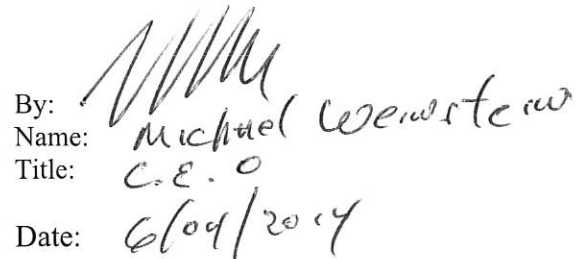 By:
Name: Michael Weinstein
Title: C.E.O
Date: 6/09/2014